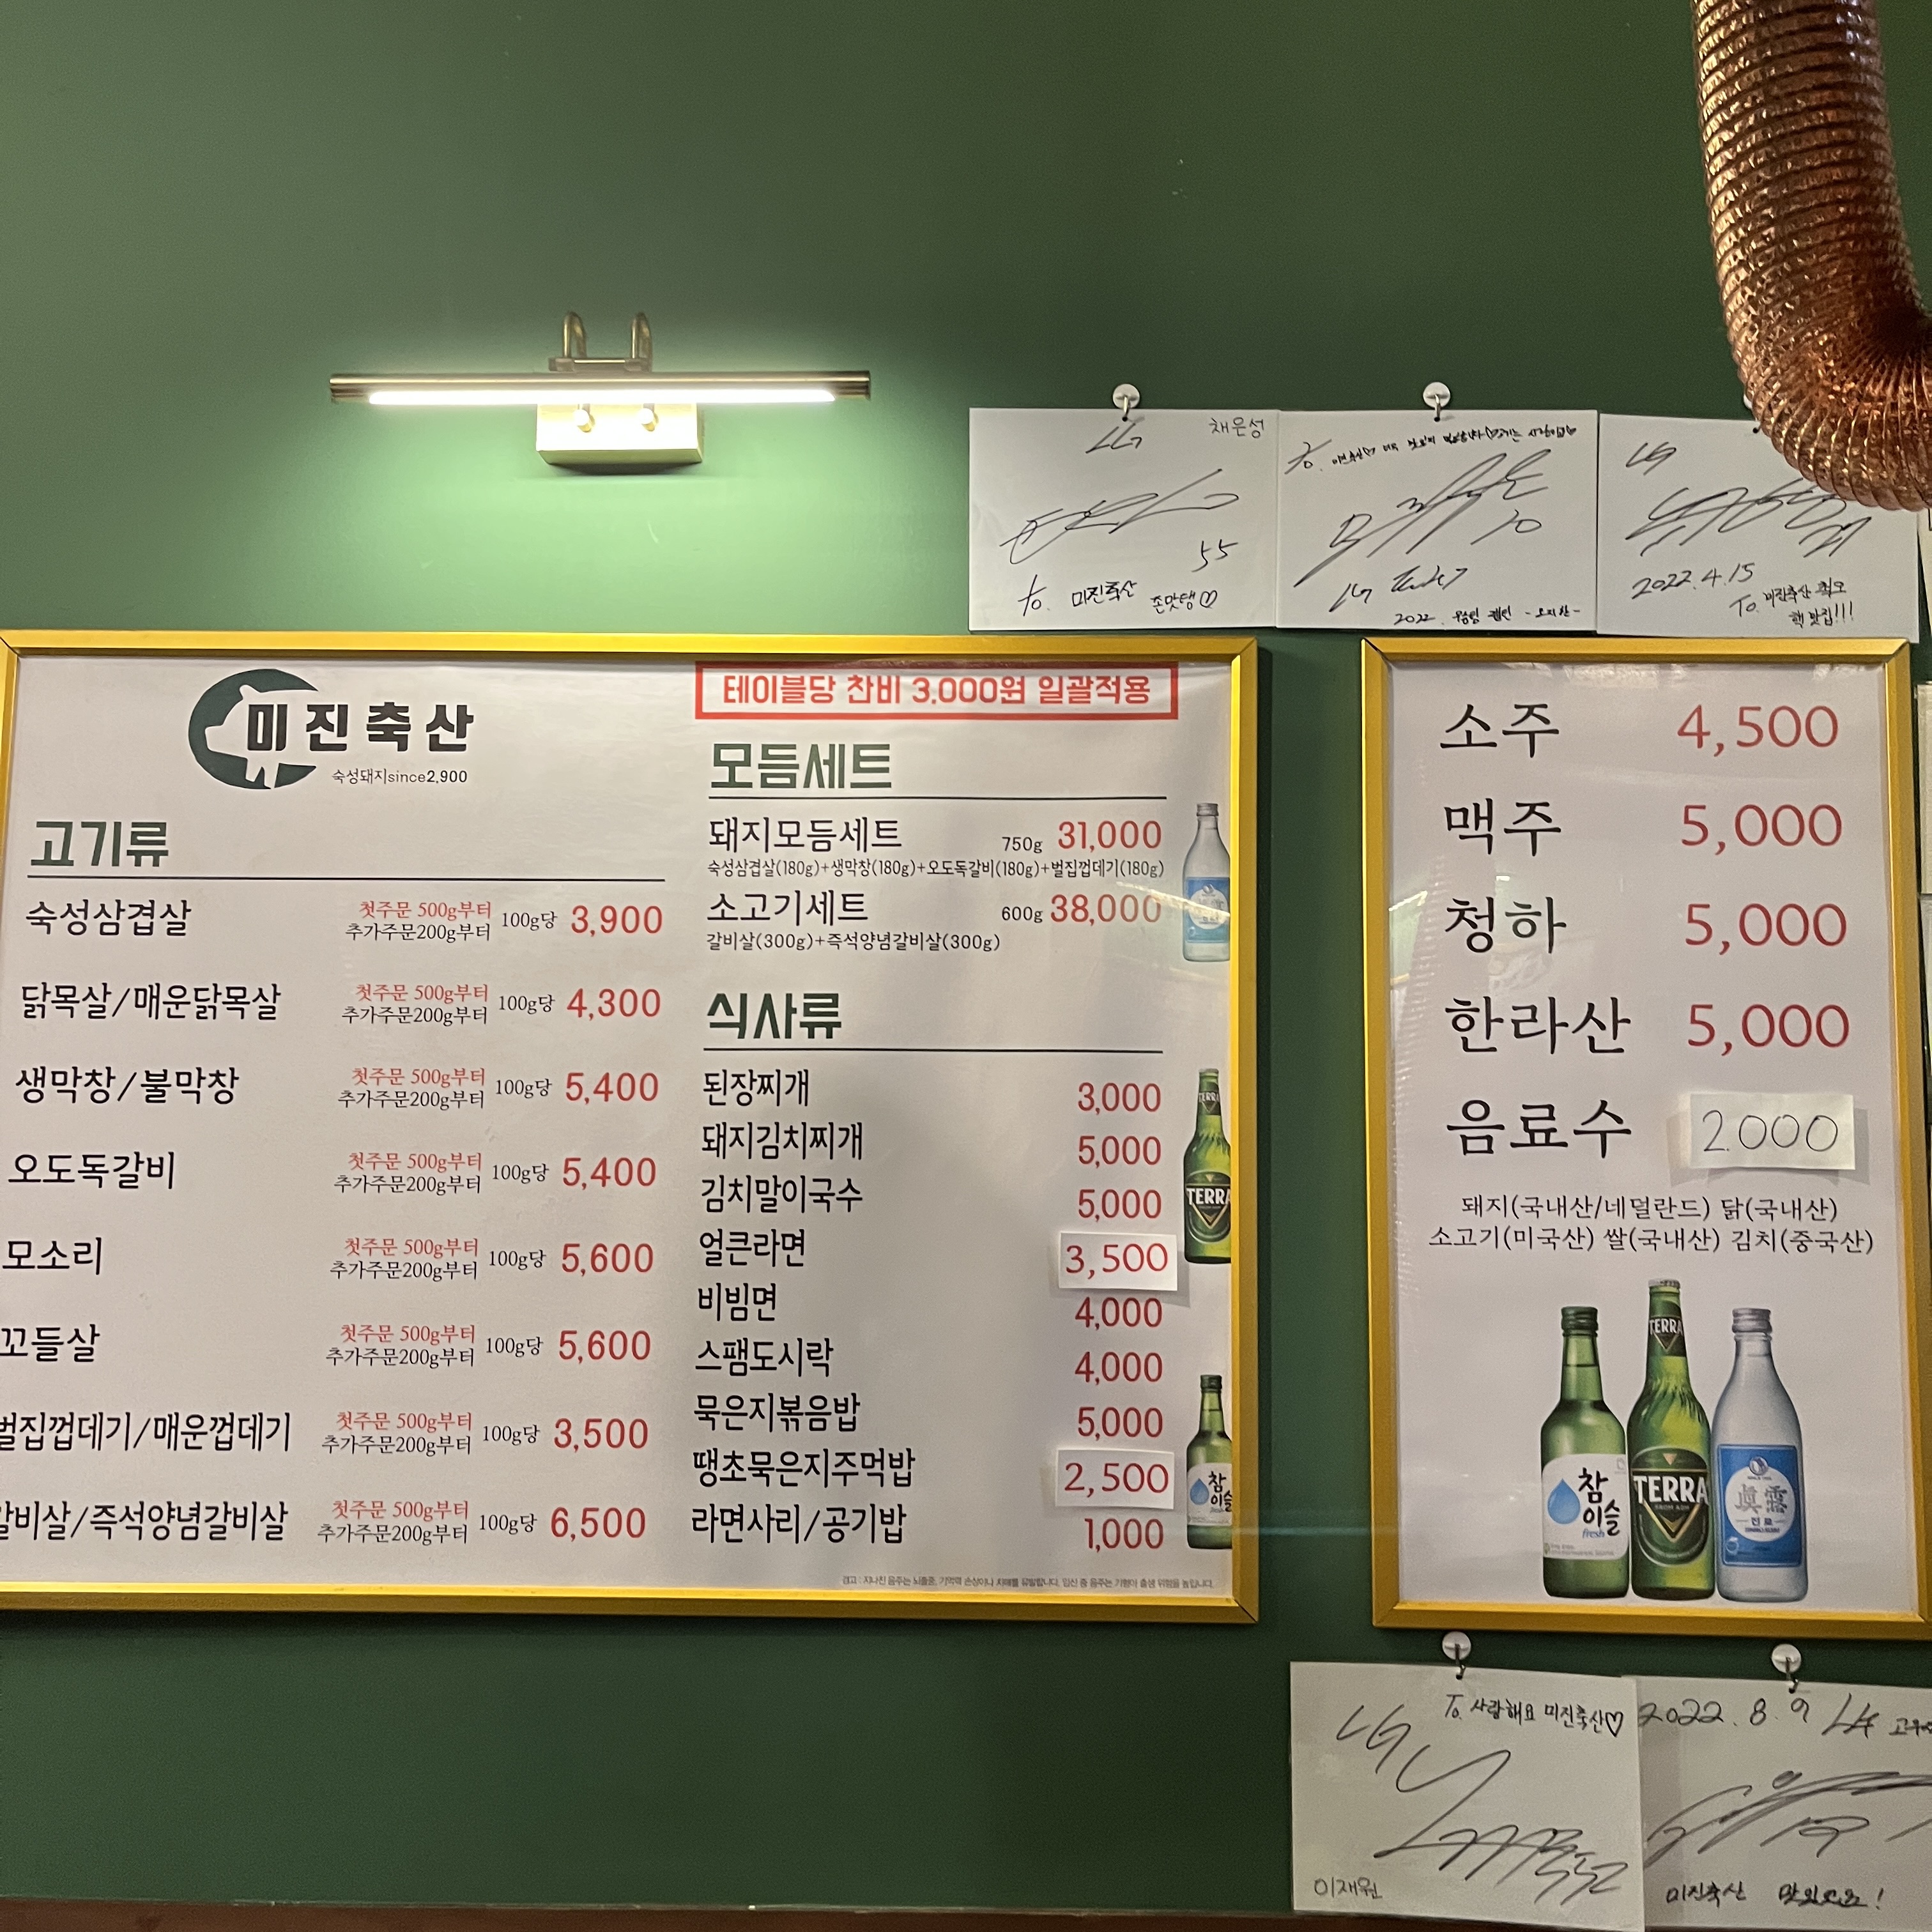 채은성
LG
55
To. 미진축산 손맛탱♡
To.
LG
2022.
LG
2022.4.15
To. 미진축산
핵 맛집!!!
미진축산
숙성돼지since2,900
고기류
숙성삼겹살 첫주문 500g부터 추가주문200g부터 100g당 3,900
닭목살/매운닭목살 첫주문 500g부터 추가주문200g부터 100g당 4,300
생막창/불막창 첫주문 500g부터 추가주문200g부터 100g당 5,400
오도독갈비 첫주문 500g부터 추가주문200g부터 100g당 5,400
모소리 첫주문 500g부터 추가주문200g부터 100g당 5,600
꼬들살 첫주문 500g부터 추가주문200g부터 100g당 5,600
벌집껍데기/매운껍데기 첫주문 500g부터 추가주문200g부터 100g당 3,500
갈비살/즉석양념갈비살 첫주문 500g부터 추가주문200g부터 100g당 6,500
테이블당 찬비 3,000원 일괄적용
모듬세트
돼지모듬세트 750g 31,000
숙성삼겹살(180g)+생막창(180g)+오도독갈비(180g)+벌집껍데기(180g)
소고기세트 600g 38,000
갈비살(300g)+즉석양념갈비살(300g)
식사류
된장찌개 3,000
돼지김치찌개 5,000
김치말이국수 5,000
얼큰라면 3,500
비빔면 4,000
스팸도시락 4,000
묵은지볶음밥 5,000
땡초묵은지주먹밥 2,500
라면사리/공기밥 1,000
경고 : 지나친 음주는 뇌졸중, 기억력 손상이나 치매를 유발합니다. 임신 중 음주는 기형아 출생 위험을 높입니다.
TERRA
TERRA
참이슬
소주 4,500
맥주 5,000
청하 5,000
한라산 5,000
음료수 2.000
돼지(국내산/네덜란드) 닭(국내산)
소고기(미국산) 쌀(국내산) 김치(중국산)
참이슬
fresh
TERRA
TERRA
眞露
진로
To. 사랑해요 미진축산♡
LG
이재원
2022. 8. 9
미진축산 맛있어요!